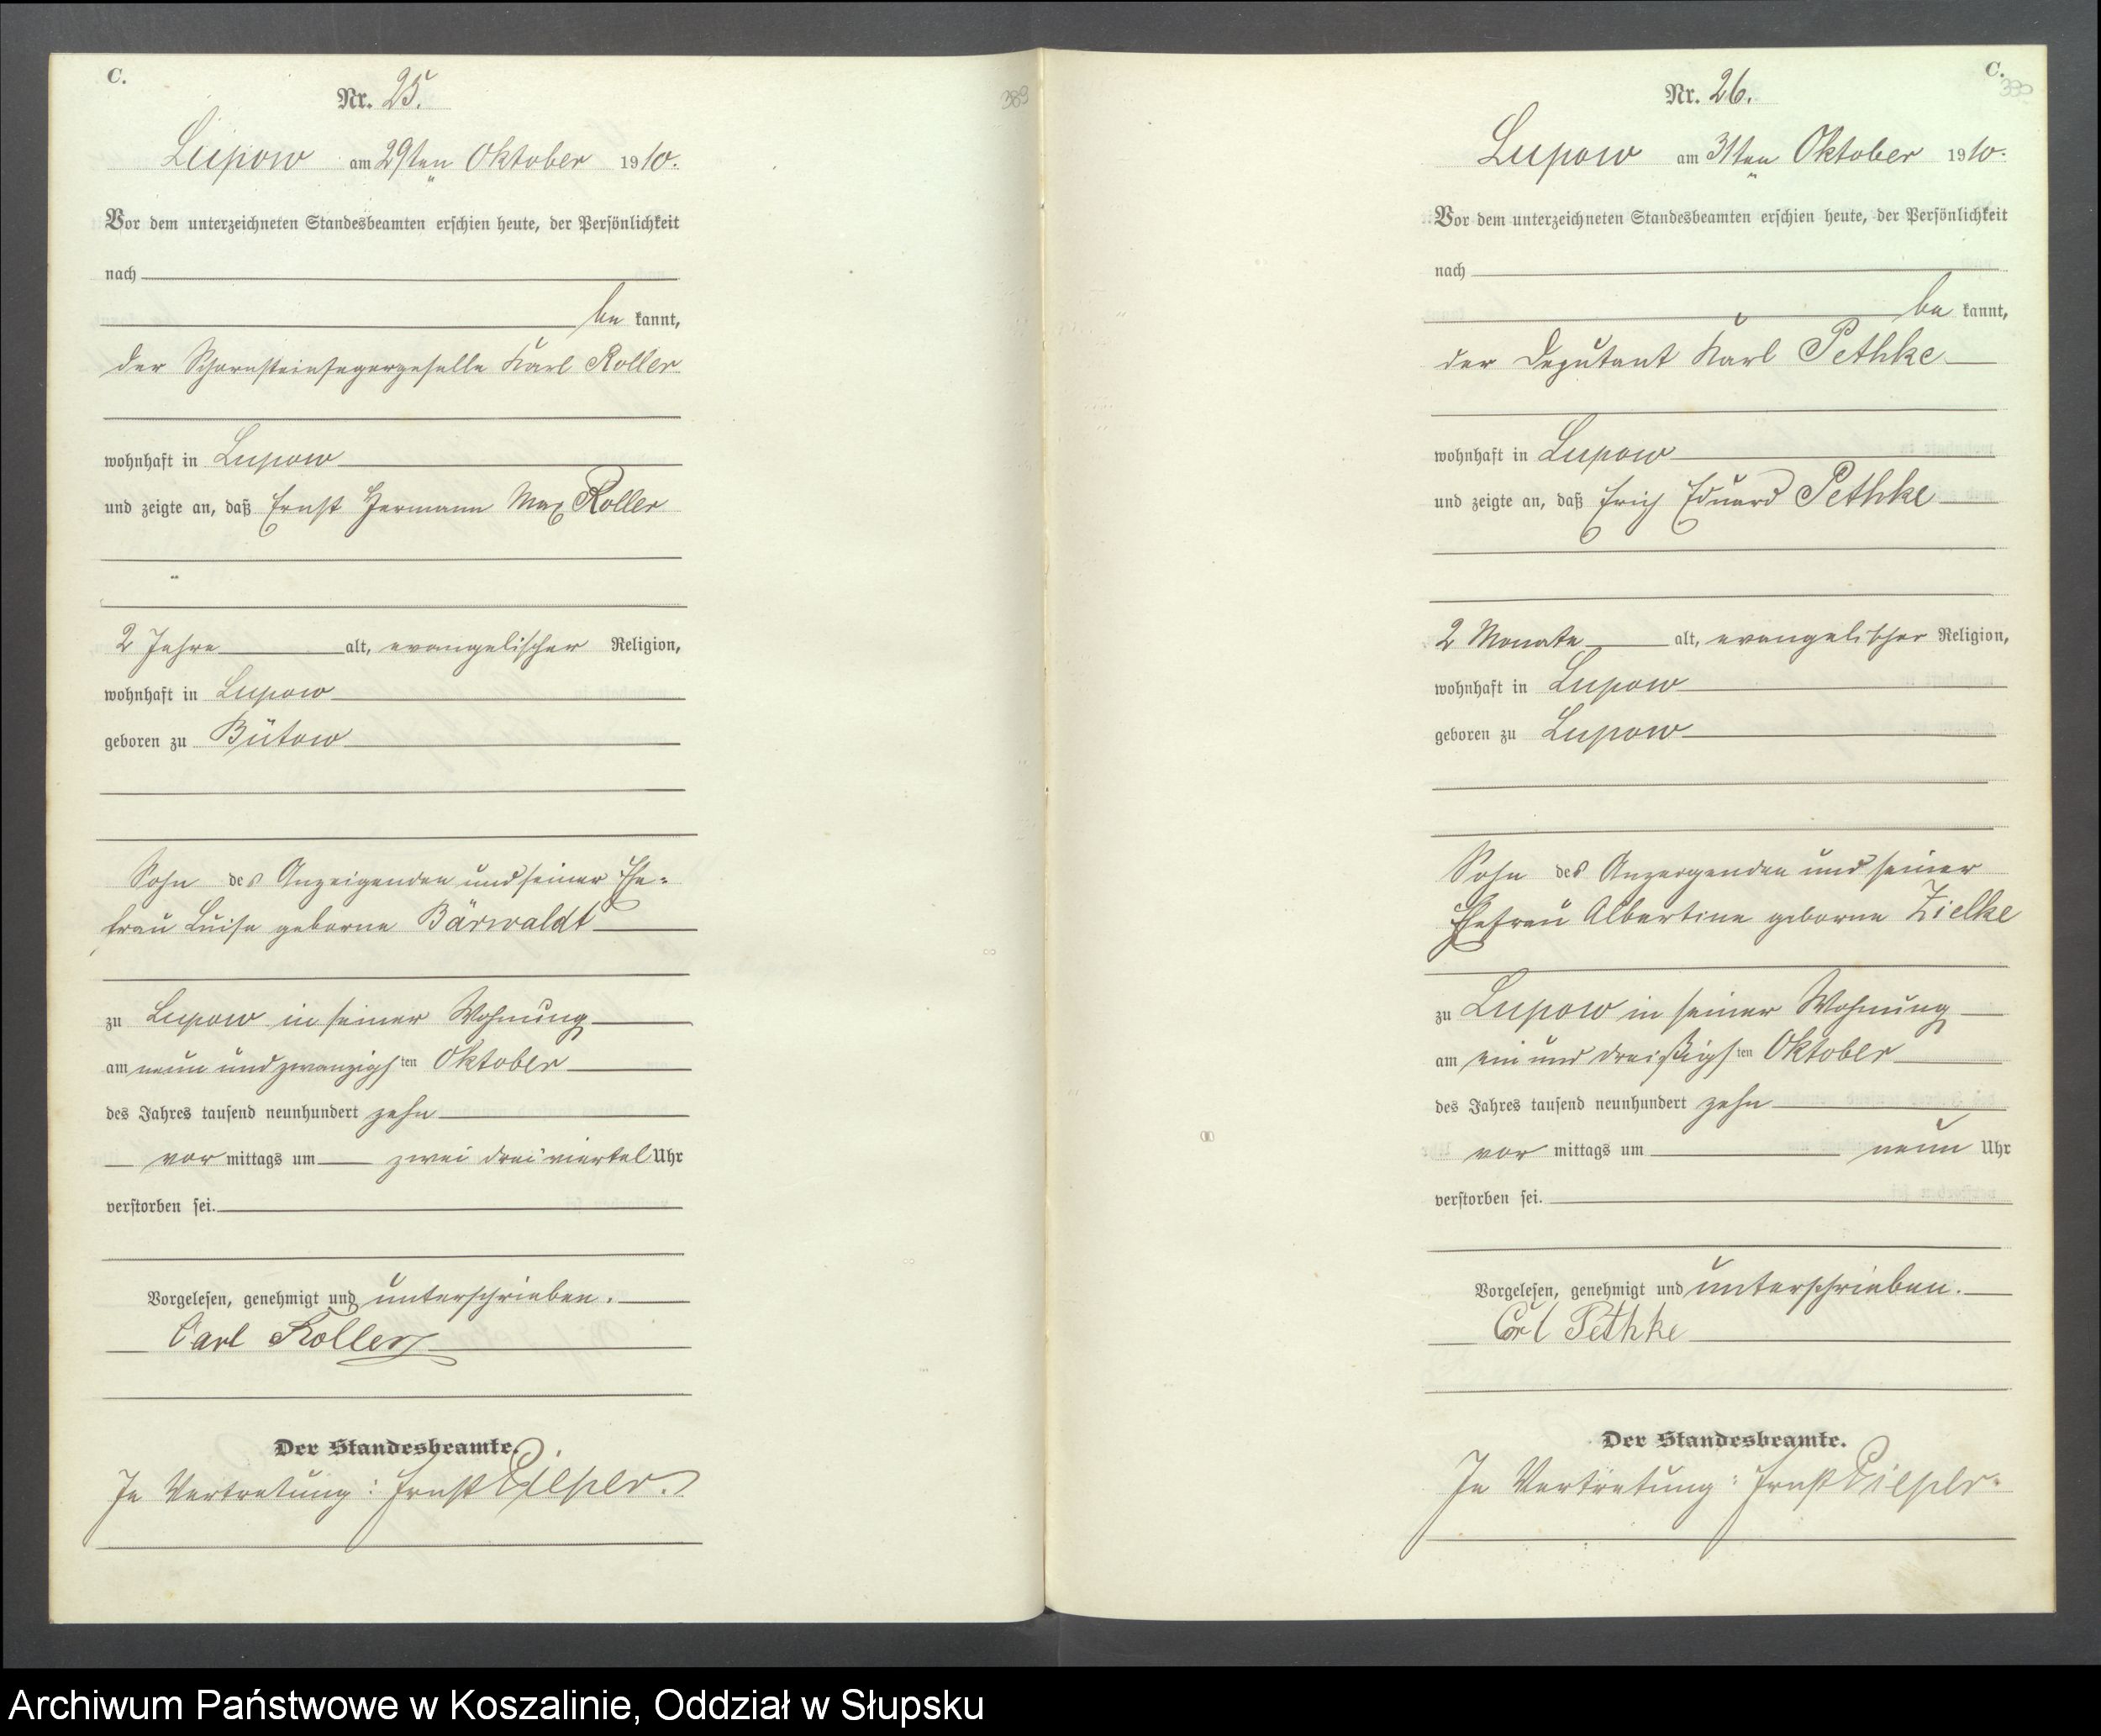 C.
Nr. 25.
389
Lupow am 29ten Oktober 1910.
Vor dem unterzeichneten Standesbeamten erschien heute, der Persönlichkeit
nach
be kannt,
der Schornsteinfegergeselle Karl Roller
wohnhaft in Lupow
und zeigte an, daß Ernst Hermann Max Roller
2 Jahre alt, evangelischer Religion,
wohnhaft in Lupow
geboren zu Bütow
Sohn des Anzeigenden und seiner Ehe=
frau Luise geborne Bärwaldt
zu Lupow in seiner Wohnung
am neun und zwanzigsten Oktober
des Jahres tausend neunhundert zehn
vor mittags um zwei dreiviertel Uhr
verstorben sei.
Vorgelesen, genehmigt und unterschrieben.
Carl Roller
Der Standesbeamte.
In Vertretung: Ernst Pieper.
C.
Nr. 26.
Lupow am 31ten Oktober 1910.
Vor dem unterzeichneten Standesbeamten erschien heute, der Persönlichkeit
nach
be kannt,
der Deputant Karl Pethke
wohnhaft in Lupow
und zeigte an, daß Erich Eduard Pethke
2 Monate alt, evangelischer Religion,
wohnhaft in Lupow
geboren zu Lupow
Sohn des Anzeigenden und seiner
Ehefrau Albertine geborne Zielke
zu Lupow in seiner Wohnung
am ein und dreißigsten Oktober
des Jahres tausend neunhundert zehn
vor mittags um neun Uhr
verstorben sei.
Vorgelesen, genehmigt und unterschrieben.
Carl Pethke
Der Standesbeamte.
In Vertretung: Ernst Pieper.
Archiwum Państwowe w Koszalinie, Oddział w Słupsku